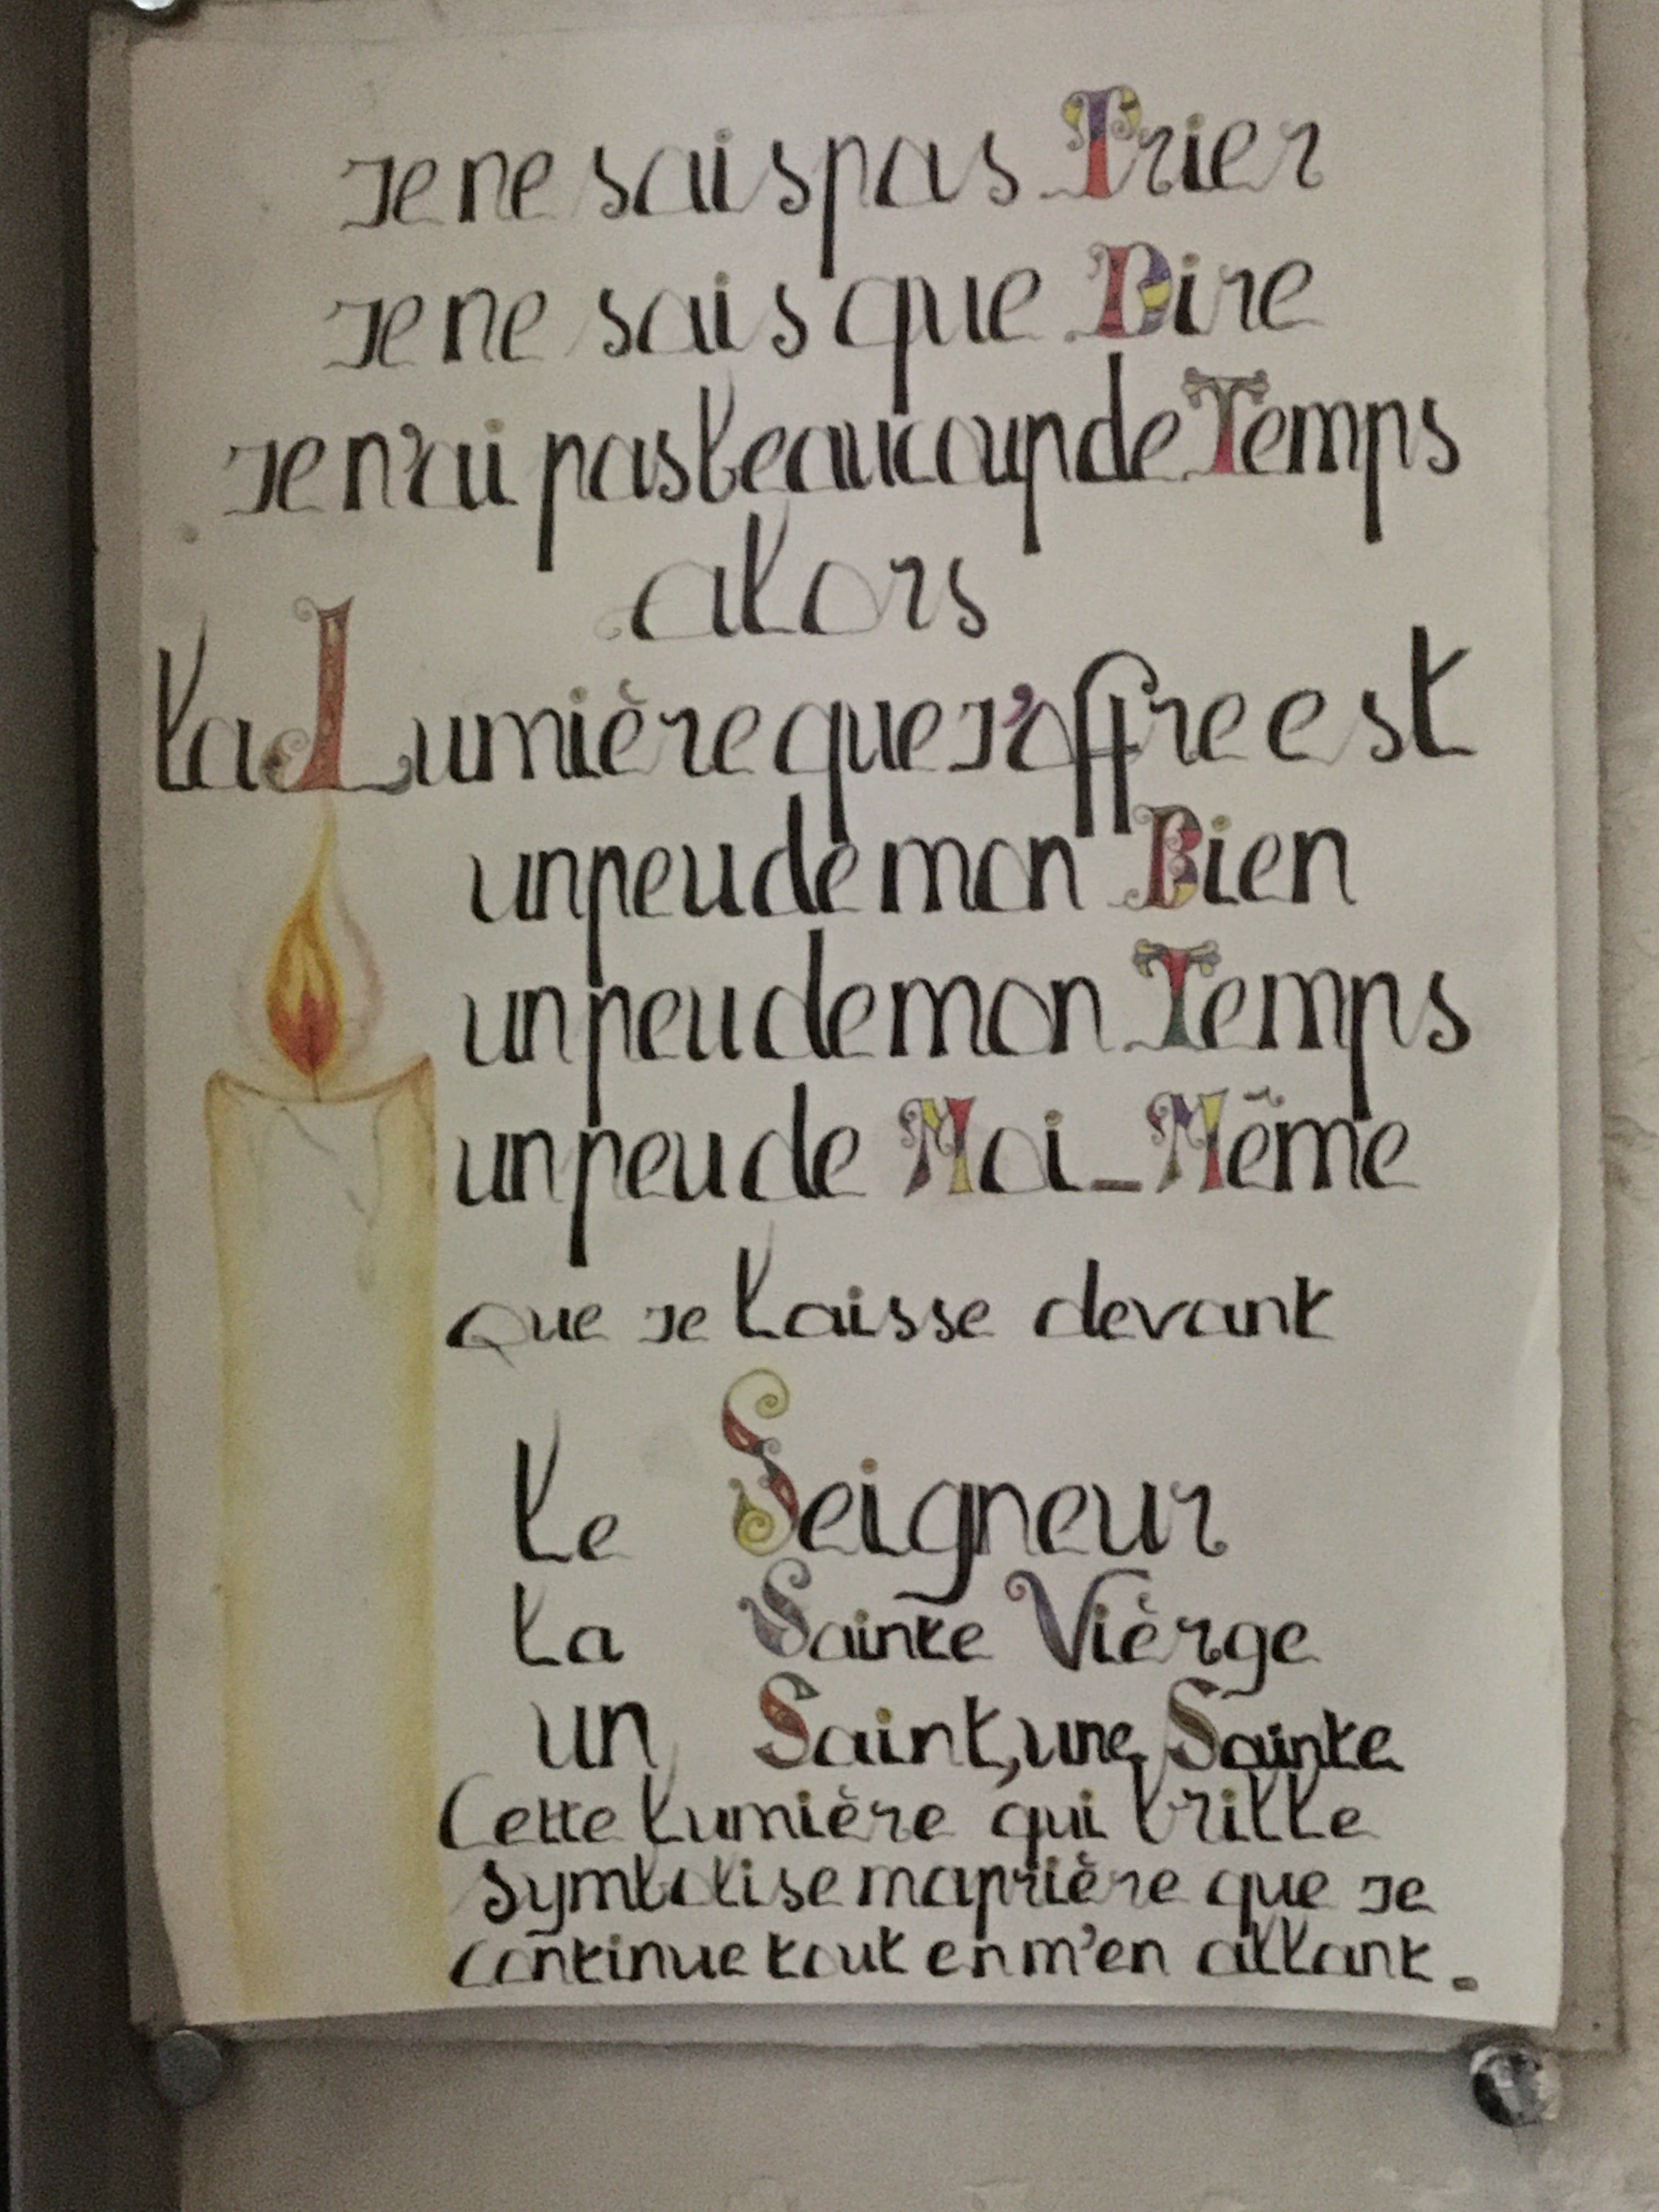 Je ne sais pas Prier
Je ne sais que Dire
Je n'ai pas beaucoup de Temps
alors
la Lumière que j'offre est
un peu de mon Bien
un peu de mon Temps
un peu de Moi-Même
que je laisse devant
le Seigneur
la Sainte Vièrge
un Saint, une Sainte
Cette lumière qui brille
symbolise ma prière que je
continue tout en m'en allant.